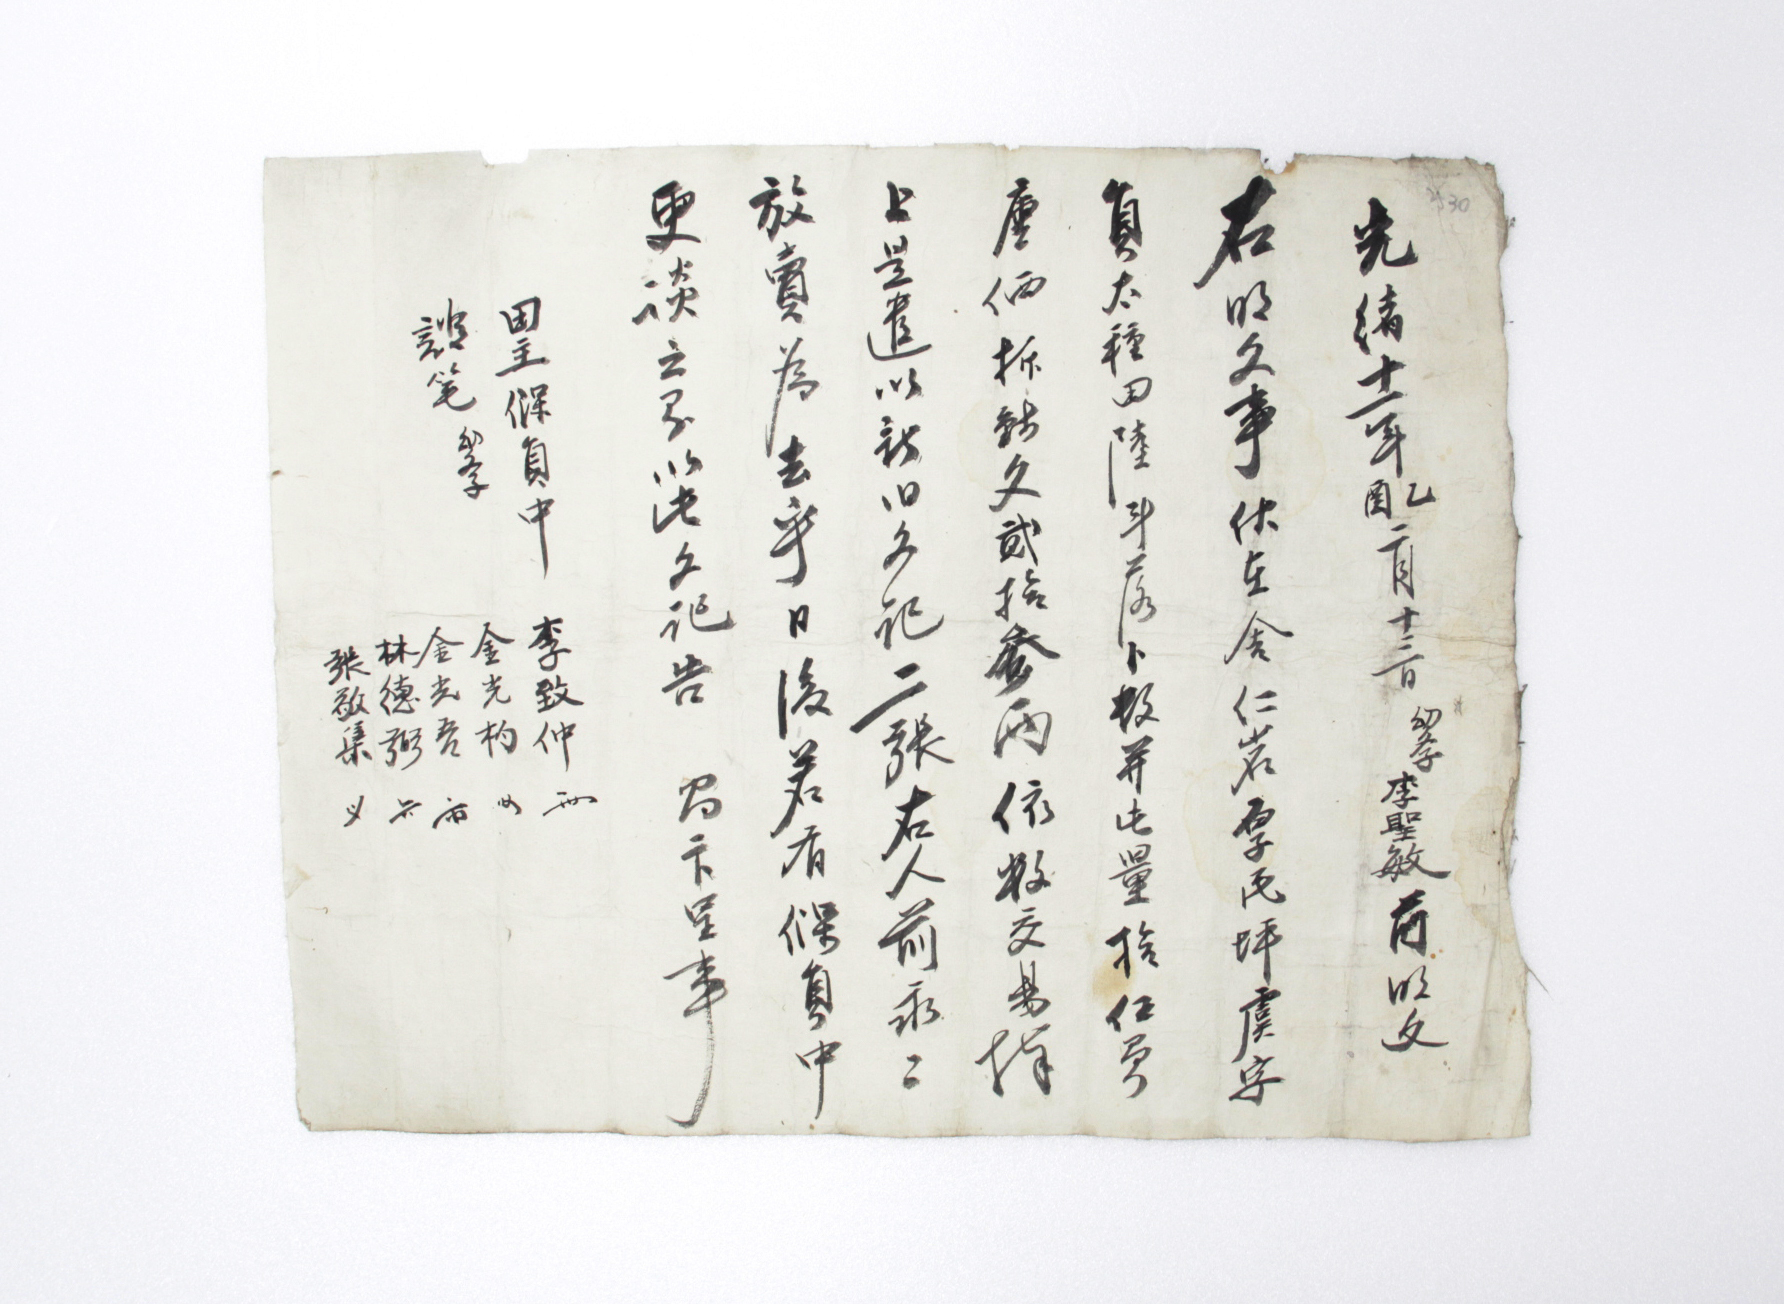 光緒十一年乙酉二月十二日 幼學李聖敏前明文
右明文事伏在舍仁岩厚民坪虞字
員太種田陸斗落卜數并七量拾仁負
庫価折錢文貳拾叁兩依數交易捧
上是遣以新旧文記二張右人前永〻
放賣爲去乎日後若有保負中
更談之系以此文記告 官卞呈事
田主保負中 李致仲
金光杓
證笔幼學 金光吾
林德弼
張敬集
3530